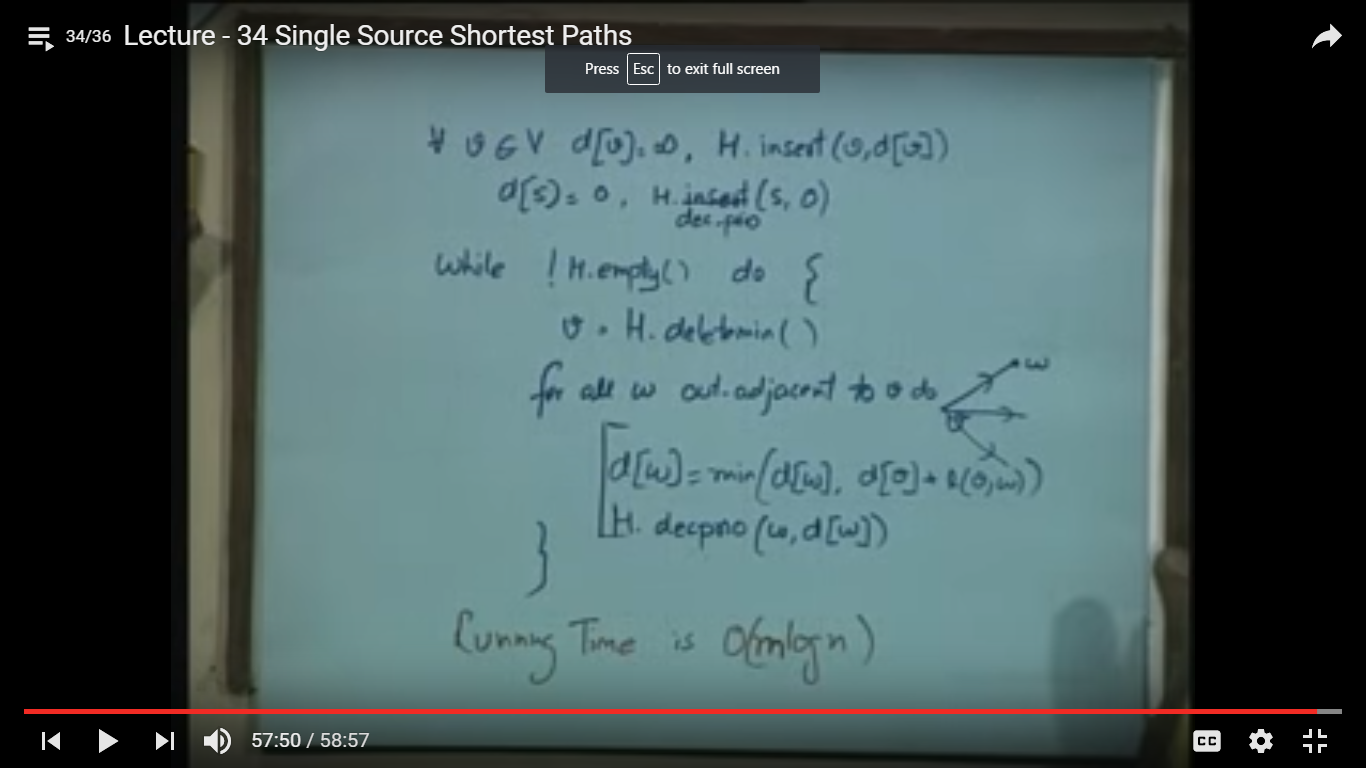 34/36 Lecture - 34 Single Source Shortest Paths
Press Esc to exit full screen
∀ v ∈ V d[v]=∞, H.insert(v,d[v])
d[s]=0, H.insert(s, 0)
dec.prio
While !H.empty() do {
v = H.deletemin()
for all w out-adjacent to v do
w
v
d[w]=min(d[w], d[v]+l(v,w))
H. decprio(w,d[w])
}
Running Time is O(mlogn)
57:50 / 58:57
CC